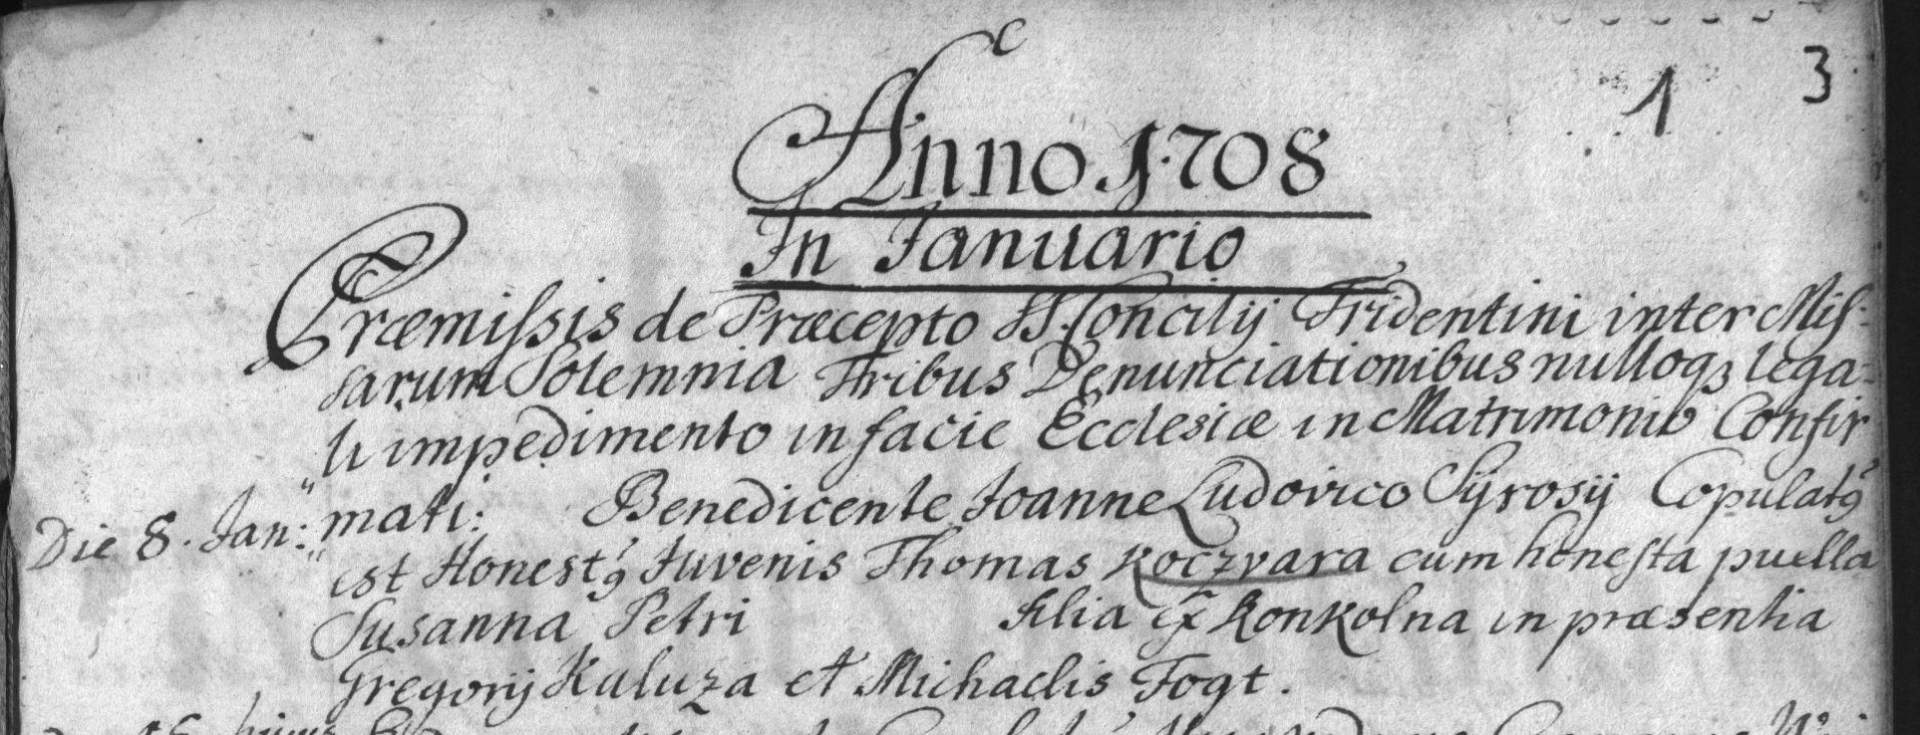 1 3
Anno 1708
In Januario
Præmissis de Præcepto SS. Concilij Tridentini inter Mis:
sarum Solemnia Tribus Denunciationibus nulloq3 lega:
li impedimento in facie Ecclesiæ in Matrimonio Confir
Die 8. Jan: mati: Benedicente Joanne Ludovico Syrosij Copulatꝰ
est Honestꝰ Juvenis Thomas Koczvara cum honesta puella
Susanna Petri filia Ex Konkolna in præsentia
Gregorij Kaluza et Michaelis Fogt.